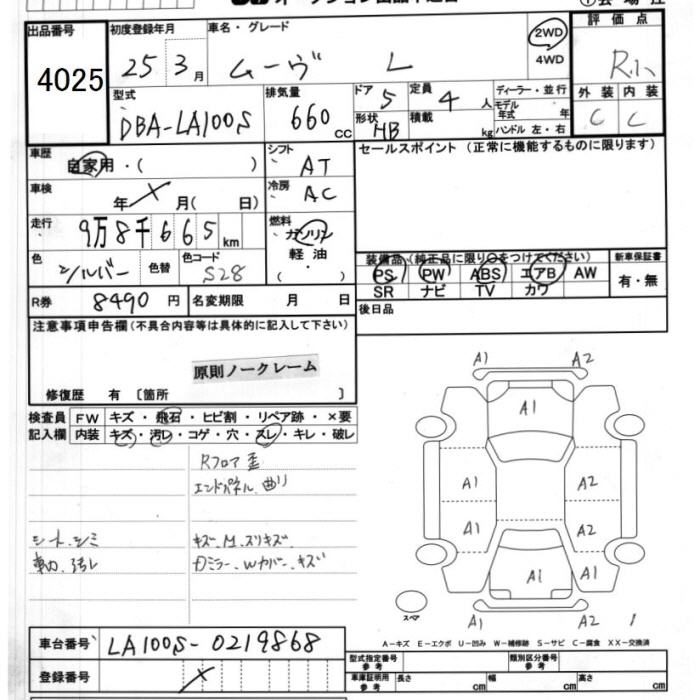 出品番号 4025
初度登録年月 25年 3月
車名・グレード ムーヴ L
2WD 4WD
評価点 R小
外装 C 内装 C
型式 DBA-LA100S
排気量 660 CC
ドア 5
形状 HB
定員 4 人
積載 kg
ディーラー・並行
モデル年式 年
ハンドル 左・右
車歴 自家用・( )
車検 年 × 月( 日)
走行 9万8千665 km
色 シルバー 色替
色コード S28
R券 8490 円
名変期限 月 日
シフト AT
冷房 AC
燃料 ガソリン
軽油
( ・ )
セールスポイント (正常に機能するものに限ります)
装備品(純正品に限り○をつけてください)
PS PW ABS エアB AW
SR ナビ TV カワ
新車保証書
有・無
後日品
注意事項申告欄(不具合内容等は具体的に記入して下さい)
原則ノークレーム
修復歴 有 〔箇所 〕
検査員記入欄
FW キズ・飛石・ヒビ割・リペア跡・×要
内装 キズ・汚レ・コゲ・穴・スレ・キレ・破レ
Rフロア歪
エンドパネル、曲リ
シート、シミ
キズ、M、スリキズ
汚レ
カミラー、Wカバー、キズ
A1 A2
A1
A1 A2
A1 A2
A1 A1
A1 A2
スペア
A-キズ E-エクボ U-凹み W-補修跡 S-サビ C-腐食 XX-交換済
車台番号 LA100S-0219868
登録番号
型式指定番号 参考
類別区分番号 参考
車庫証明用 参考
長さ cm 幅 cm 高さ cm